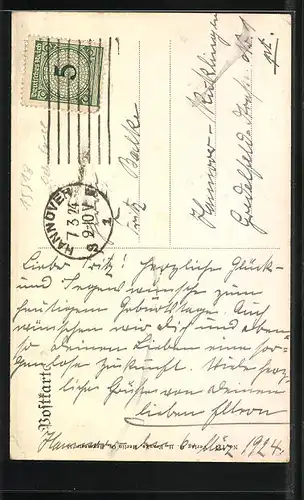 Deutsches Reich
5
HANNOVER
7 3 24
9-10 V
1
Fritz Balke
Hannover-Ricklingen
Postkarte
Lieber Fritz! Herzliche Glück-
und Segenswünsche zum
heutigen Geburtstage. Auch
wünschen wir Dir und eben-
so Deinen Lieben eine sor-
genlose Zukunft. Viele herz-
liche Grüsse von Deinen
lieben Eltern
Hannover 6 März 1924